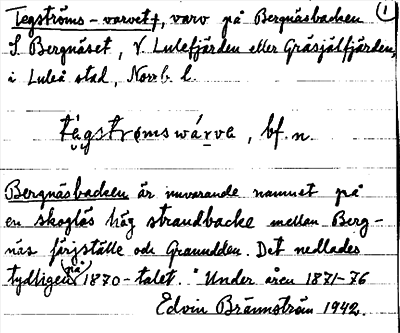 Tegströms-varvet†, varv på Bergnäsbacken ①
S Bergnäset, V. Lulefjärden eller Gräsjälfjärden,
i Luleå stad, Norrb. l.
tégstrømswárvə, bf. n.
Bergnäsbacken är nuvarande namnet på
en skoglös hög strandbacke mellan Berg-
näs färjställe och Granudden. Det nedlades
tydligen på 1870-talet. "Under åren 1871-76
Edvin Brännström 1942.